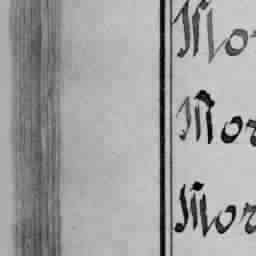 Mor
Mor
Mor